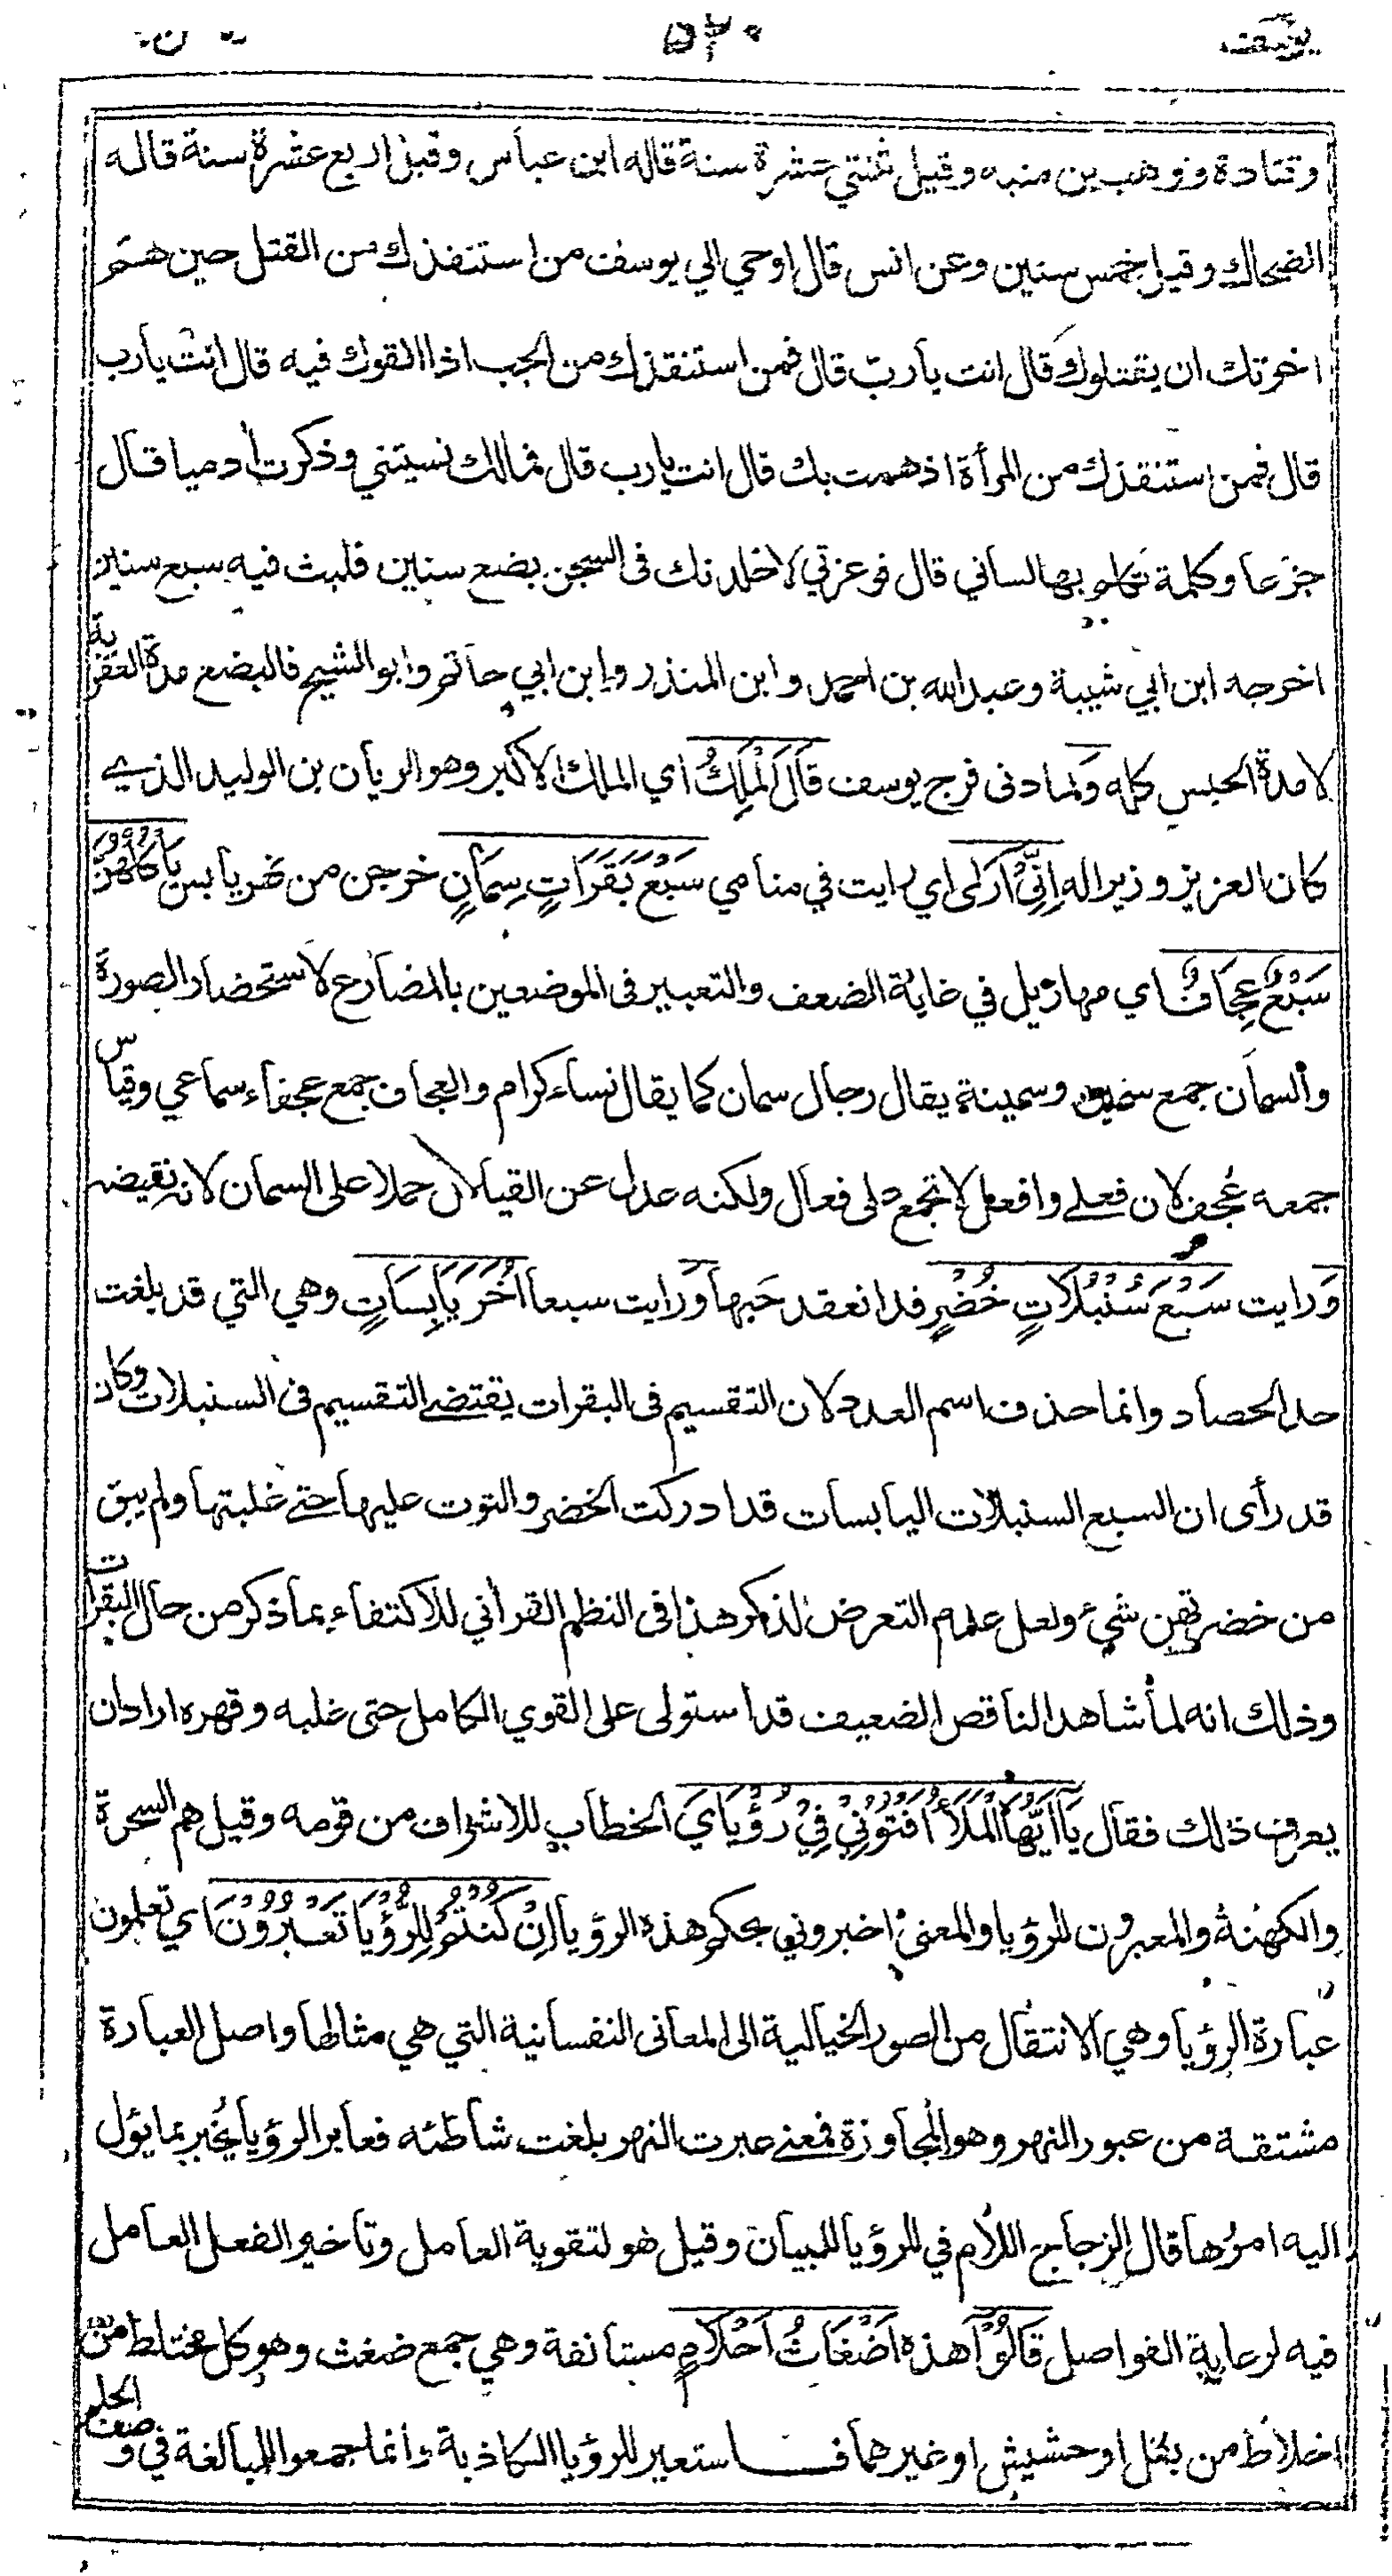 يوسف ٥٢٠
وقتادة ووهب بن منبه وقيل ثنتي عشرة سنة قاله ابن عباس وقيل اربع عشرة سنة قاله
الضحاك وقيل خمس سنين وعن انس قال اوحي الي يوسف من استنقذك من القتل حين هم
اخوتك ان يقتلوك قال انت يارب قال فمن استنقذك من الجب اذا القوك فيه قال انت يارب
قال فمن استنقذك من المرأة اذ همت بك قال انت يارب قال فمالك نسيتني وذكرت أدميا قال
جزعا وكلمة تكلم بها لساني قال فوعزتي لاخلدنك فى السجن بضع سنين فلبث فيه سبع سنين
اخرجه ابن ابي شيبة وعبد الله بن احمد وابن المنذر وابن ابي حاتم وابو الشيخ فالبضع مدة العقوبة
لا مدة الحبس كله وَلما دنى فرج يوسف قَالَ الْمَلِكُ اي الملك الاكبر وهو الريان بن الوليد الذي
كان العزيز وزيرا له اِنِّيْ اَرَى اي رايت في منامي سَبْعَ بَقَرَاتٍ سِمَانٍ خرجن من نهر يابس يَأْكُلُهُنَّ
سَبْعٌ عِجَافٌ اي مهازيل في غاية الضعف والتعبير فى الموضعين بالمضارع لاستحضار الصورة
والسمان جمع سمين وسمينة يقال رجال سمان كما يقال نساء كرام والعجاف جمع عجفاء سماعي وقياس
جمعه عُجف لان فعلى وافعل لا تجمع على فعال ولكنه عدل عن القياس حملا على السمان لانه نقيضه
وَرايت سَبْعَ سُنْبُلَاتٍ خُضْرٍ قد انعقد حَبها وَرايت سبعا اُخَرَ يَابِسَاتٍ وهي التي قد بلغت
حد الحصاد وانما حذف اسم العدد لان التقسيم فى البقرات يقتضي التقسيم فى السنبلات وكان
قد رأى ان السبع السنبلات اليابسات قد ادركت الخضر والتوت عليها حتى غلبتها ولم يبق
من خضرتهن شيء ولعل عدم التعرض لذكر هذا فى النظم القرأني للاكتفاء بما ذكر من حال البقرات
وذلك انه لما شاهد الناقص الضعيف قد استولى على القوي الكامل حتى غلبه وقهره اراد ان
يعرف ذلك فقال يَا اَيُّهَا الْمَلَأُ اَفْتُوْنِيْ فِيْ رُؤْيَايَ الخطاب للاشراف من قومه وقيل هم السحرة
والكهنة والمعبرون للرؤيا والمعنى اخبروني بحكم هذه الرؤيا اِنْ كُنْتُمْ لِلرُّؤْيَا تَعْبُرُوْنَ اي تعلمون
عبارة الرؤيا وهي الانتقال من الصور الخيالية الى المعانى النفسانية التي هي مثالها واصل العبارة
مشتقة من عبور النهر وهو المجاوزة فمعنى عبرت النهر بلغت شاطئه فعابر الرؤيا يُخبر بما يئول
اليه امرُها قال الزجاج اللام في للرؤيا للبيان وقيل هو لتقوية العامل وتاخير الفعل العامل
فيه لرعاية الفواصل قَالُوْا هذه اَضْغَاثُ اَحْلَامٍ مستانفة وهي جمع ضغث وهو كل مختلط من
اخلاط من بقل او حشيش او غيرهما فاستعير للرؤيا الكاذبة وانما جمعوا للمبالغة في وصف الحلم